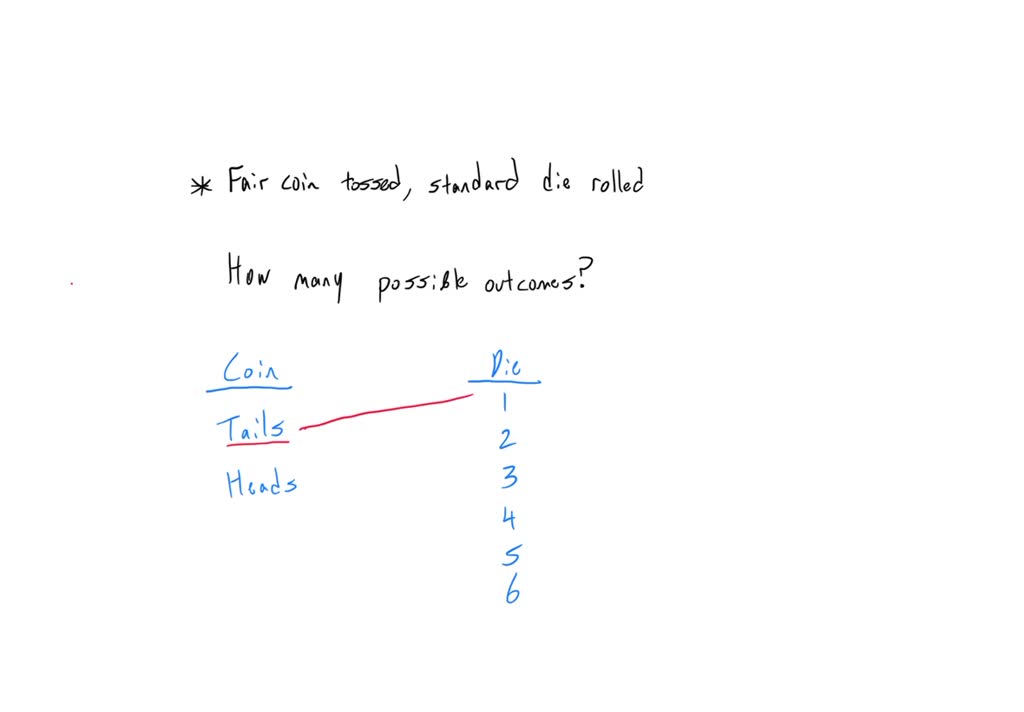 * Fair coin tossed, standard die rolled
How many possible outcomes?
Coin Die
Tails 1
2
Heads 3
4
5
6